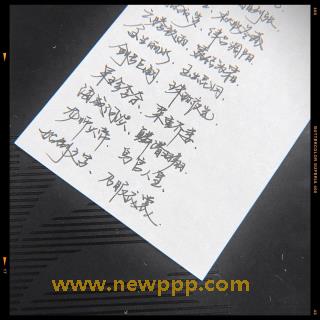 云腾致雨、露结为霜
金生丽水、玉出昆冈
剑号巨阙、珠称夜光
果珍李柰、菜重芥姜
海咸河淡、鳞潜羽翔
龙师火帝、鸟官人皇
始制文字、乃服衣裳
www.newppp.com